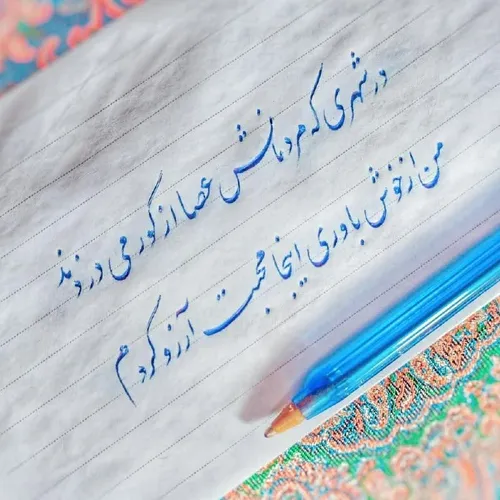 در شهری که مردمانش عصا از کور می دزدند
من از خوش باوری اینجا محبت آرزو کردم